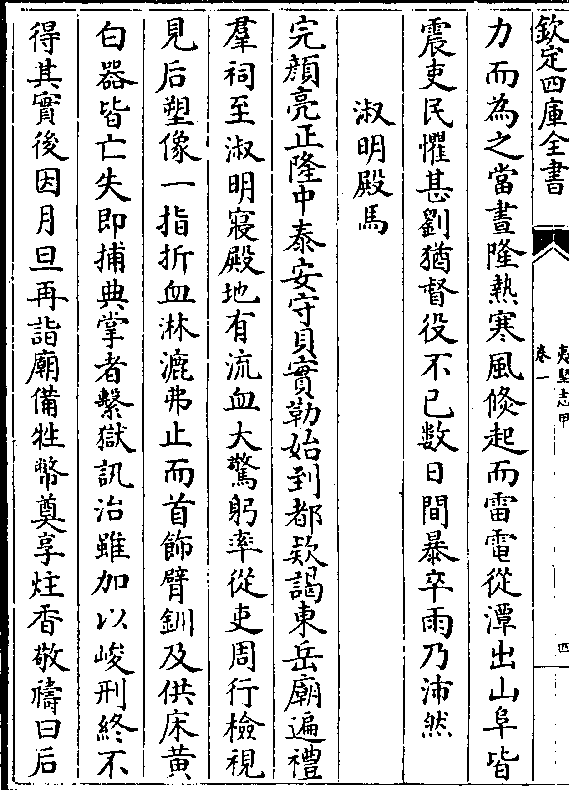 欽定四庫全書
夷堅志甲
卷一
四
力而為之當晝隆熱寒風倐起而雷電從潭出山阜皆
震吏民懼甚劉猶督役不已數日間暴卒雨乃沛然
淑明殿馬
完顔亮正隆中泰安守貝實勒始到都欵謁東岳廟遍禮
羣祠至淑明寢殿地有流血大驚躬率從吏周行檢視
見后塑像一指折血淋漉弗止而首飾臂釧及供床黄
白器皆亡失即捕典掌者繫獄訊治雖加以峻刑終不
得其實後因月旦再詣廟備牲幣奠享炷香敬禱曰后